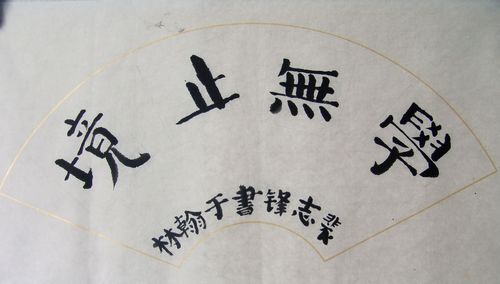 學無止境
裴志锋書于翰林